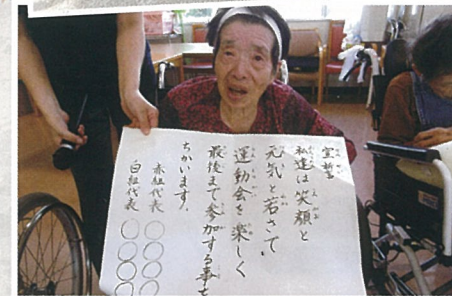 宣誓
私達は笑顔と
元気と若さで、
運動会を楽しく
最後まで参加する事を
ちかいます。
赤組代表 〇〇〇〇
白組代表 〇〇〇〇